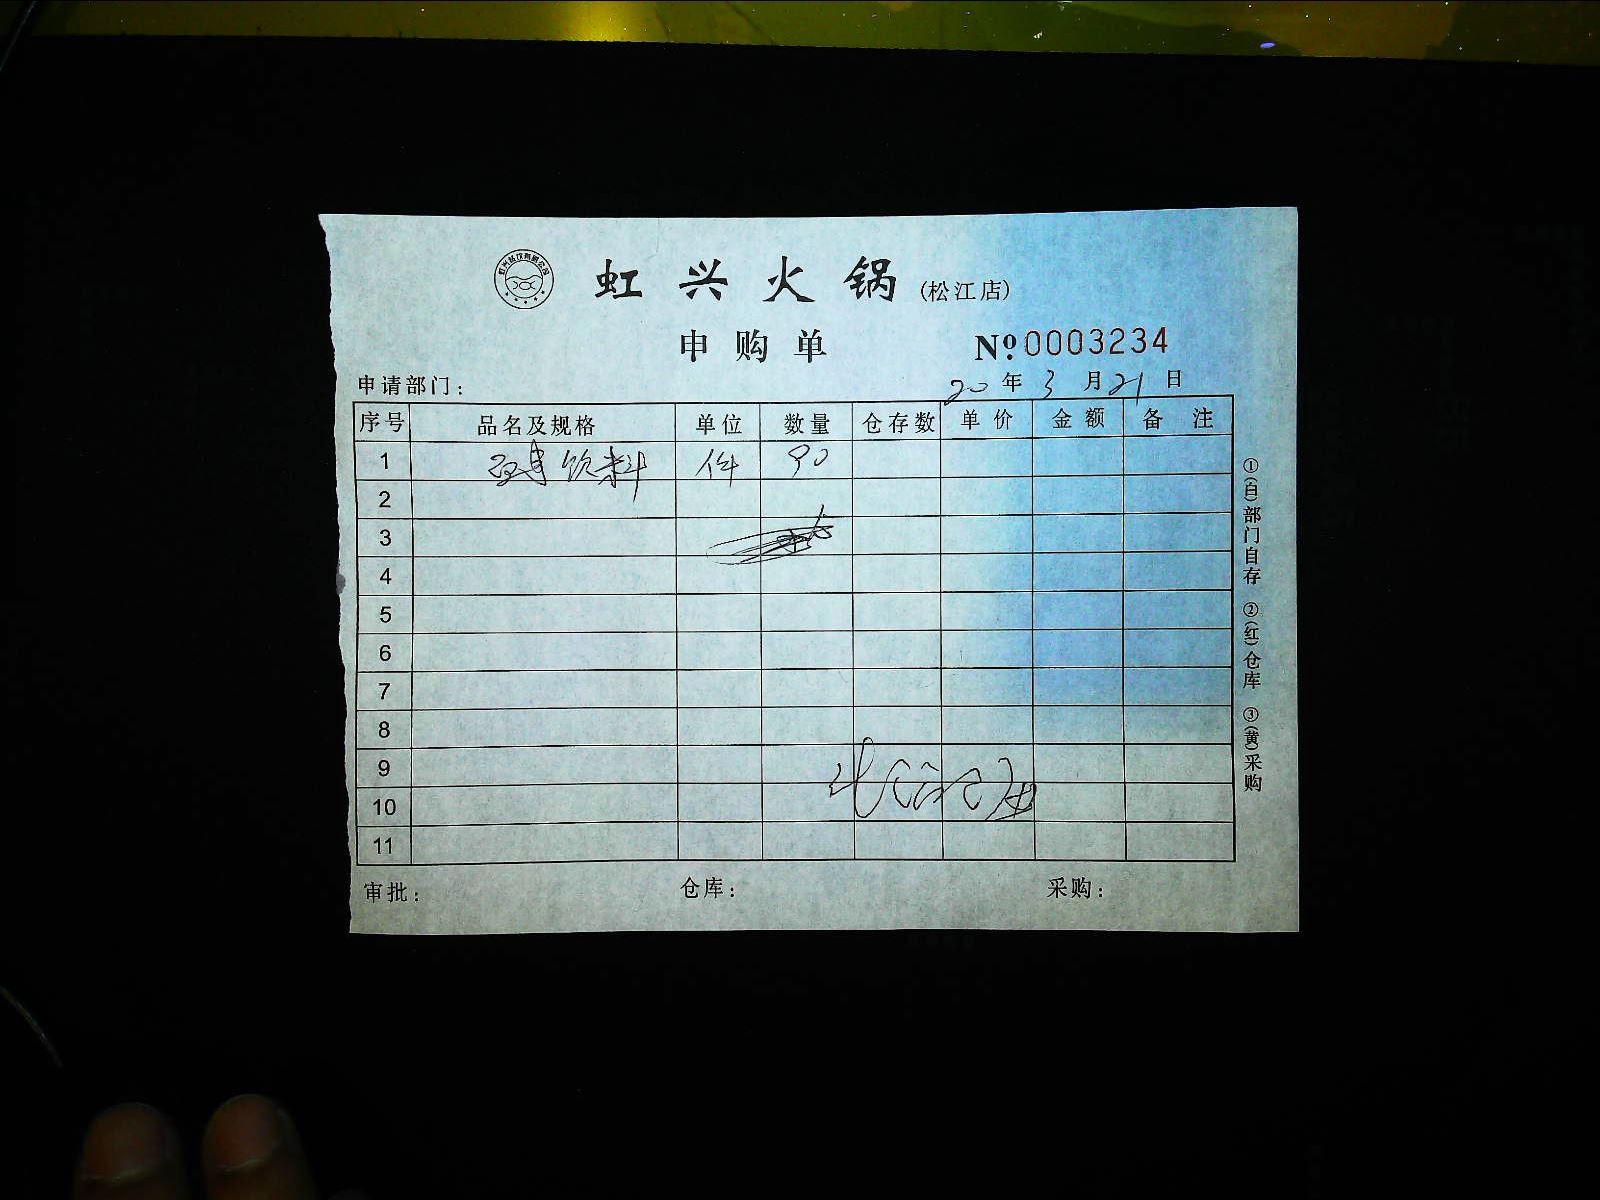 虹兴火锅(松江店)
申购单 Nº 0003234
申请部门: 20年3月21日
序号 品名及规格 单位 数量 仓存数 单价 金额 备注
1 饮料 件 90
2
3
4
5
6
7
8
9
10
11
审批: 仓库: 采购:
①(白)部门自存 ②(红)仓库 ③(黄)采购